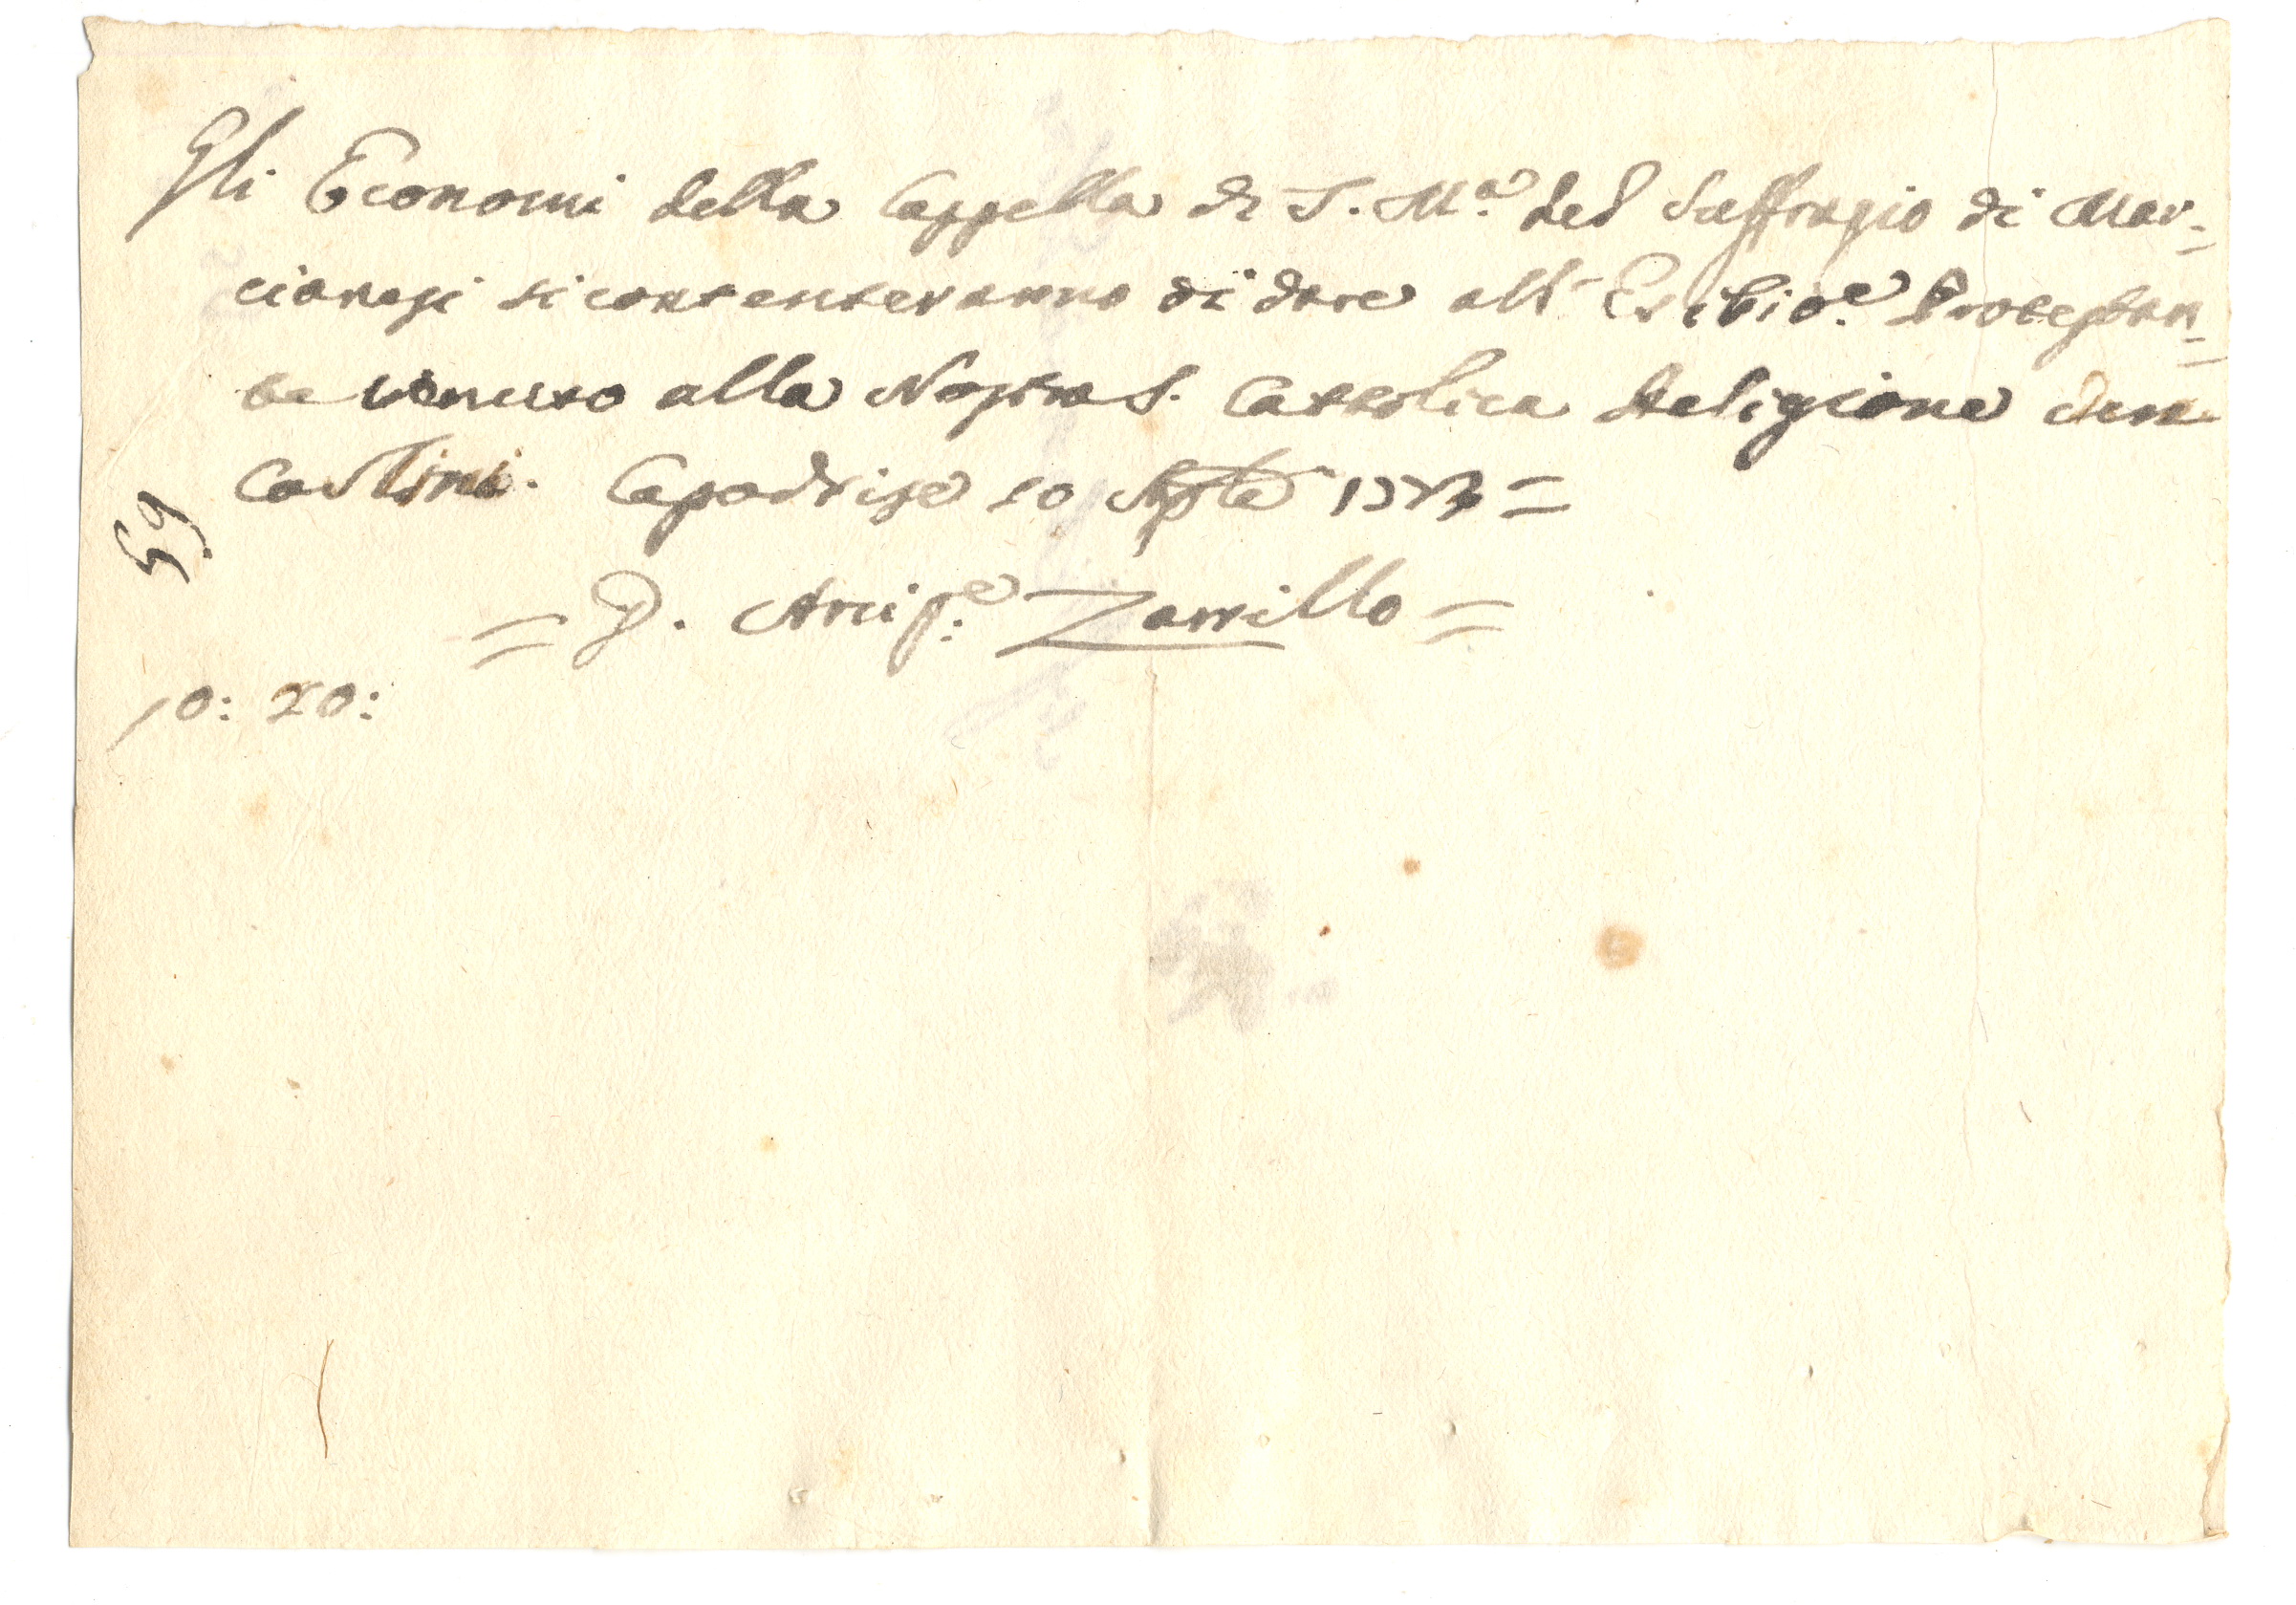 Gli Economi della Cappella di S. M.a del Suffragio di Mar=
cianesi si contenteranno di dare all' Esibio.e Protestan=
te venuto alla Nostra S. Cattolica Religione
Carlini. Capodrise 10
59
= D. Arcip.e Zarrillo =
10: 20: